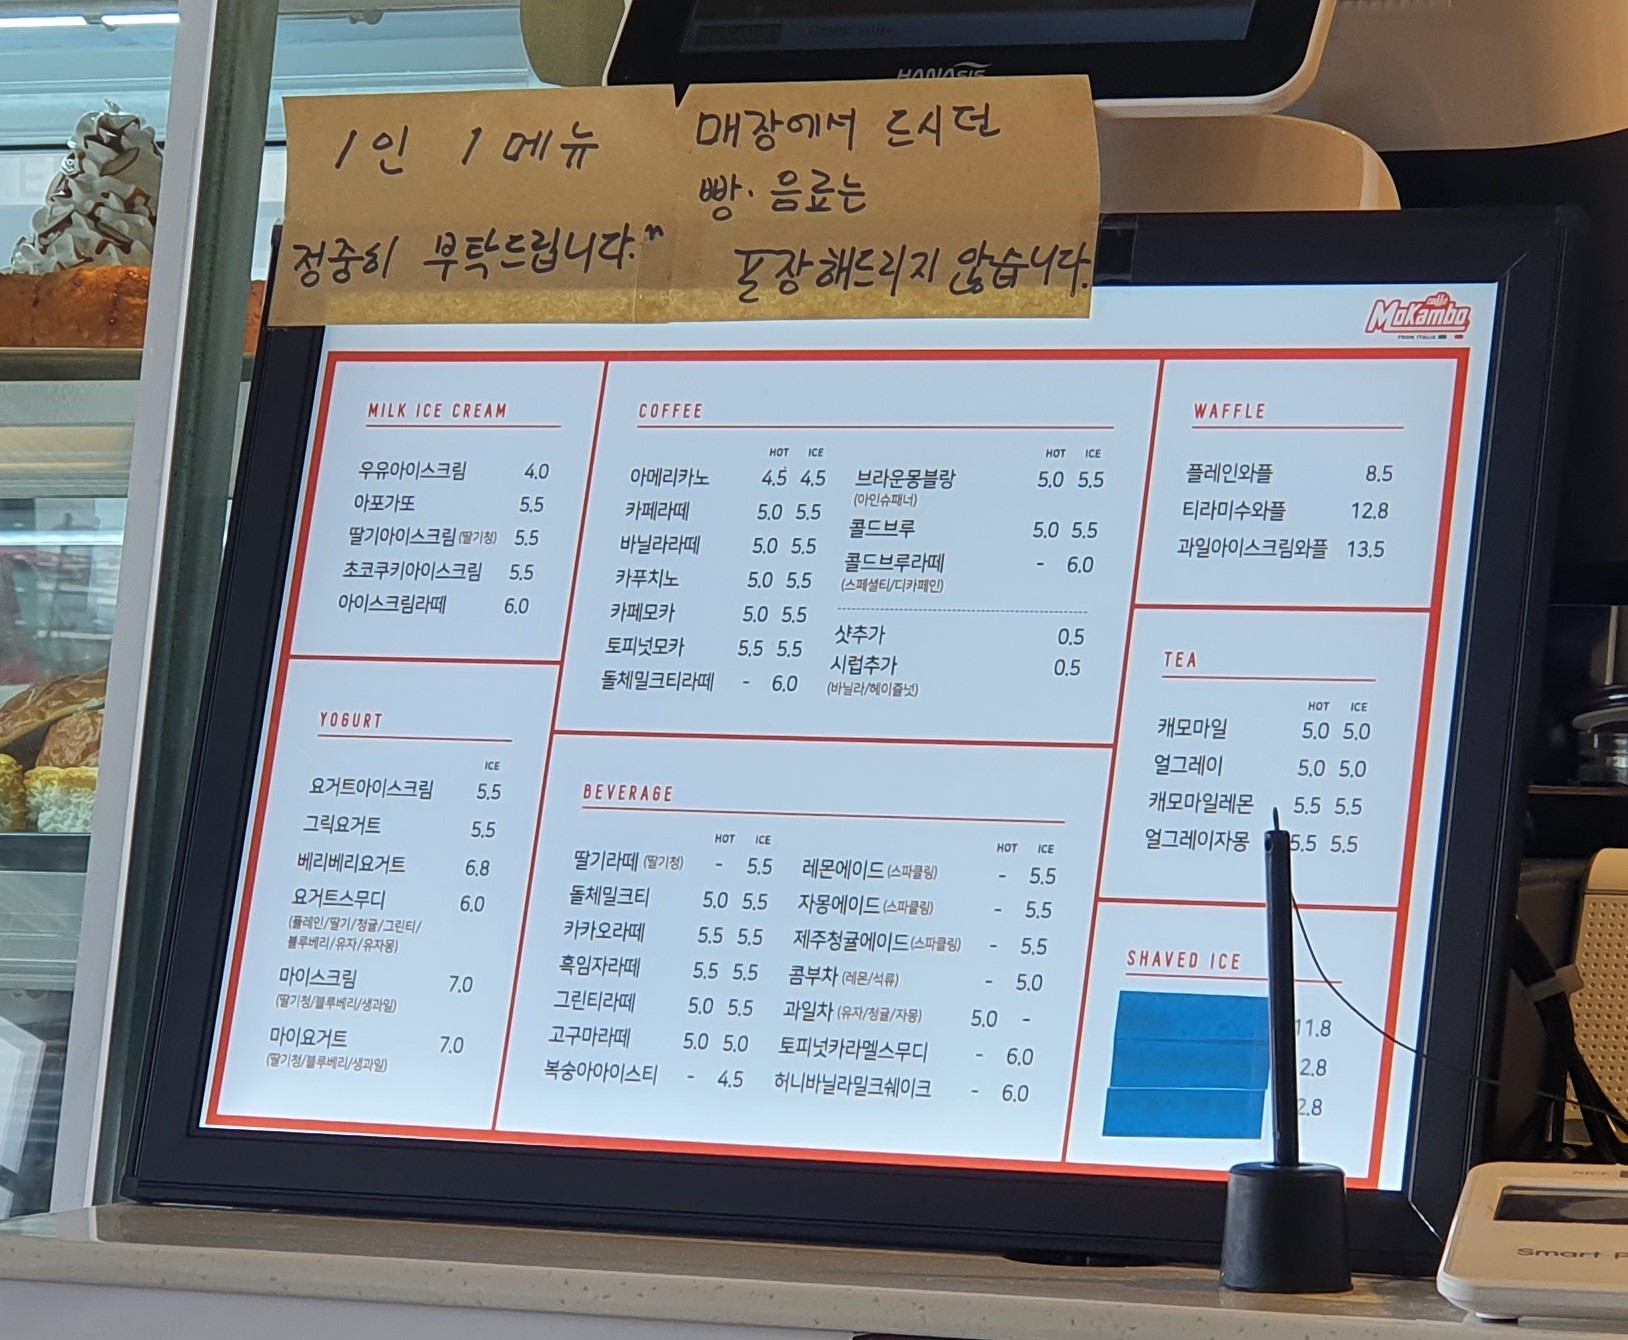 HANASIS
1인 1메뉴
정중히 부탁드립니다."
매장에서 드시던
빵·음료는
포장해드리지 않습니다.
caffè
MoKambo
FROM ITALIA
MILK ICE CREAM
우유아이스크림 4.0
아포가또 5.5
딸기아이스크림 (딸기청) 5.5
초코쿠키아이스크림 5.5
아이스크림라떼 6.0
YOGURT
ICE
요거트아이스크림 5.5
그릭요거트 5.5
베리베리요거트 6.8
요거트스무디 6.0
(플레인/딸기/청귤/그린티/
블루베리/유자/유자몽)
마이스크림 7.0
(딸기청/블루베리/생과일)
마이요거트 7.0
(딸기청/블루베리/생과일)
COFFEE
HOT ICE
아메리카노 4.5 4.5
카페라떼 5.0 5.5
바닐라라떼 5.0 5.5
카푸치노 5.0 5.5
카페모카 5.0 5.5
토피넛모카 5.5 5.5
돌체밀크티라떼 - 6.0
HOT ICE
브라운몽블랑 5.0 5.5
(아인슈패너)
콜드브루 5.0 5.5
콜드브루라떼 - 6.0
(스페셜티/디카페인)
샷추가 0.5
시럽추가 0.5
(바닐라/헤이즐넛)
BEVERAGE
HOT ICE
딸기라떼 (딸기청) - 5.5
돌체밀크티 5.0 5.5
카카오라떼 5.5 5.5
흑임자라떼 5.5 5.5
그린티라떼 5.0 5.5
고구마라떼 5.0 5.0
복숭아아이스티 - 4.5
HOT ICE
레몬에이드 (스파클링) - 5.5
자몽에이드 (스파클링) - 5.5
제주청귤에이드 (스파클링) - 5.5
콤부차 (레몬/석류) - 5.0
과일차 (유자/청귤/자몽) 5.0 -
토피넛카라멜스무디 - 6.0
허니바닐라밀크쉐이크 - 6.0
WAFFLE
플레인와플 8.5
티라미수와플 12.8
과일아이스크림와플 13.5
TEA
HOT ICE
캐모마일 5.0 5.0
얼그레이 5.0 5.0
캐모마일레몬 5.5 5.5
얼그레이자몽 5.5 5.5
SHAVED ICE
11.8
2.8
2.8
Smart